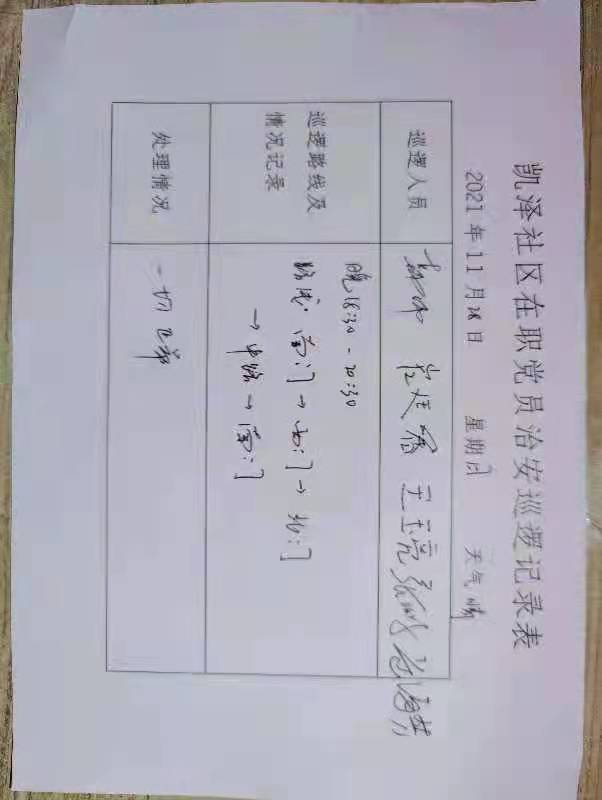 凯泽社区在职党员治安巡逻记录表
2021年11月28日 星期日 天气晴
巡逻人员
巡逻路线及
情况记录
晚18:30-20:30
路线: 南门→西门→北门
→中路→南门
处理情况
一切正常